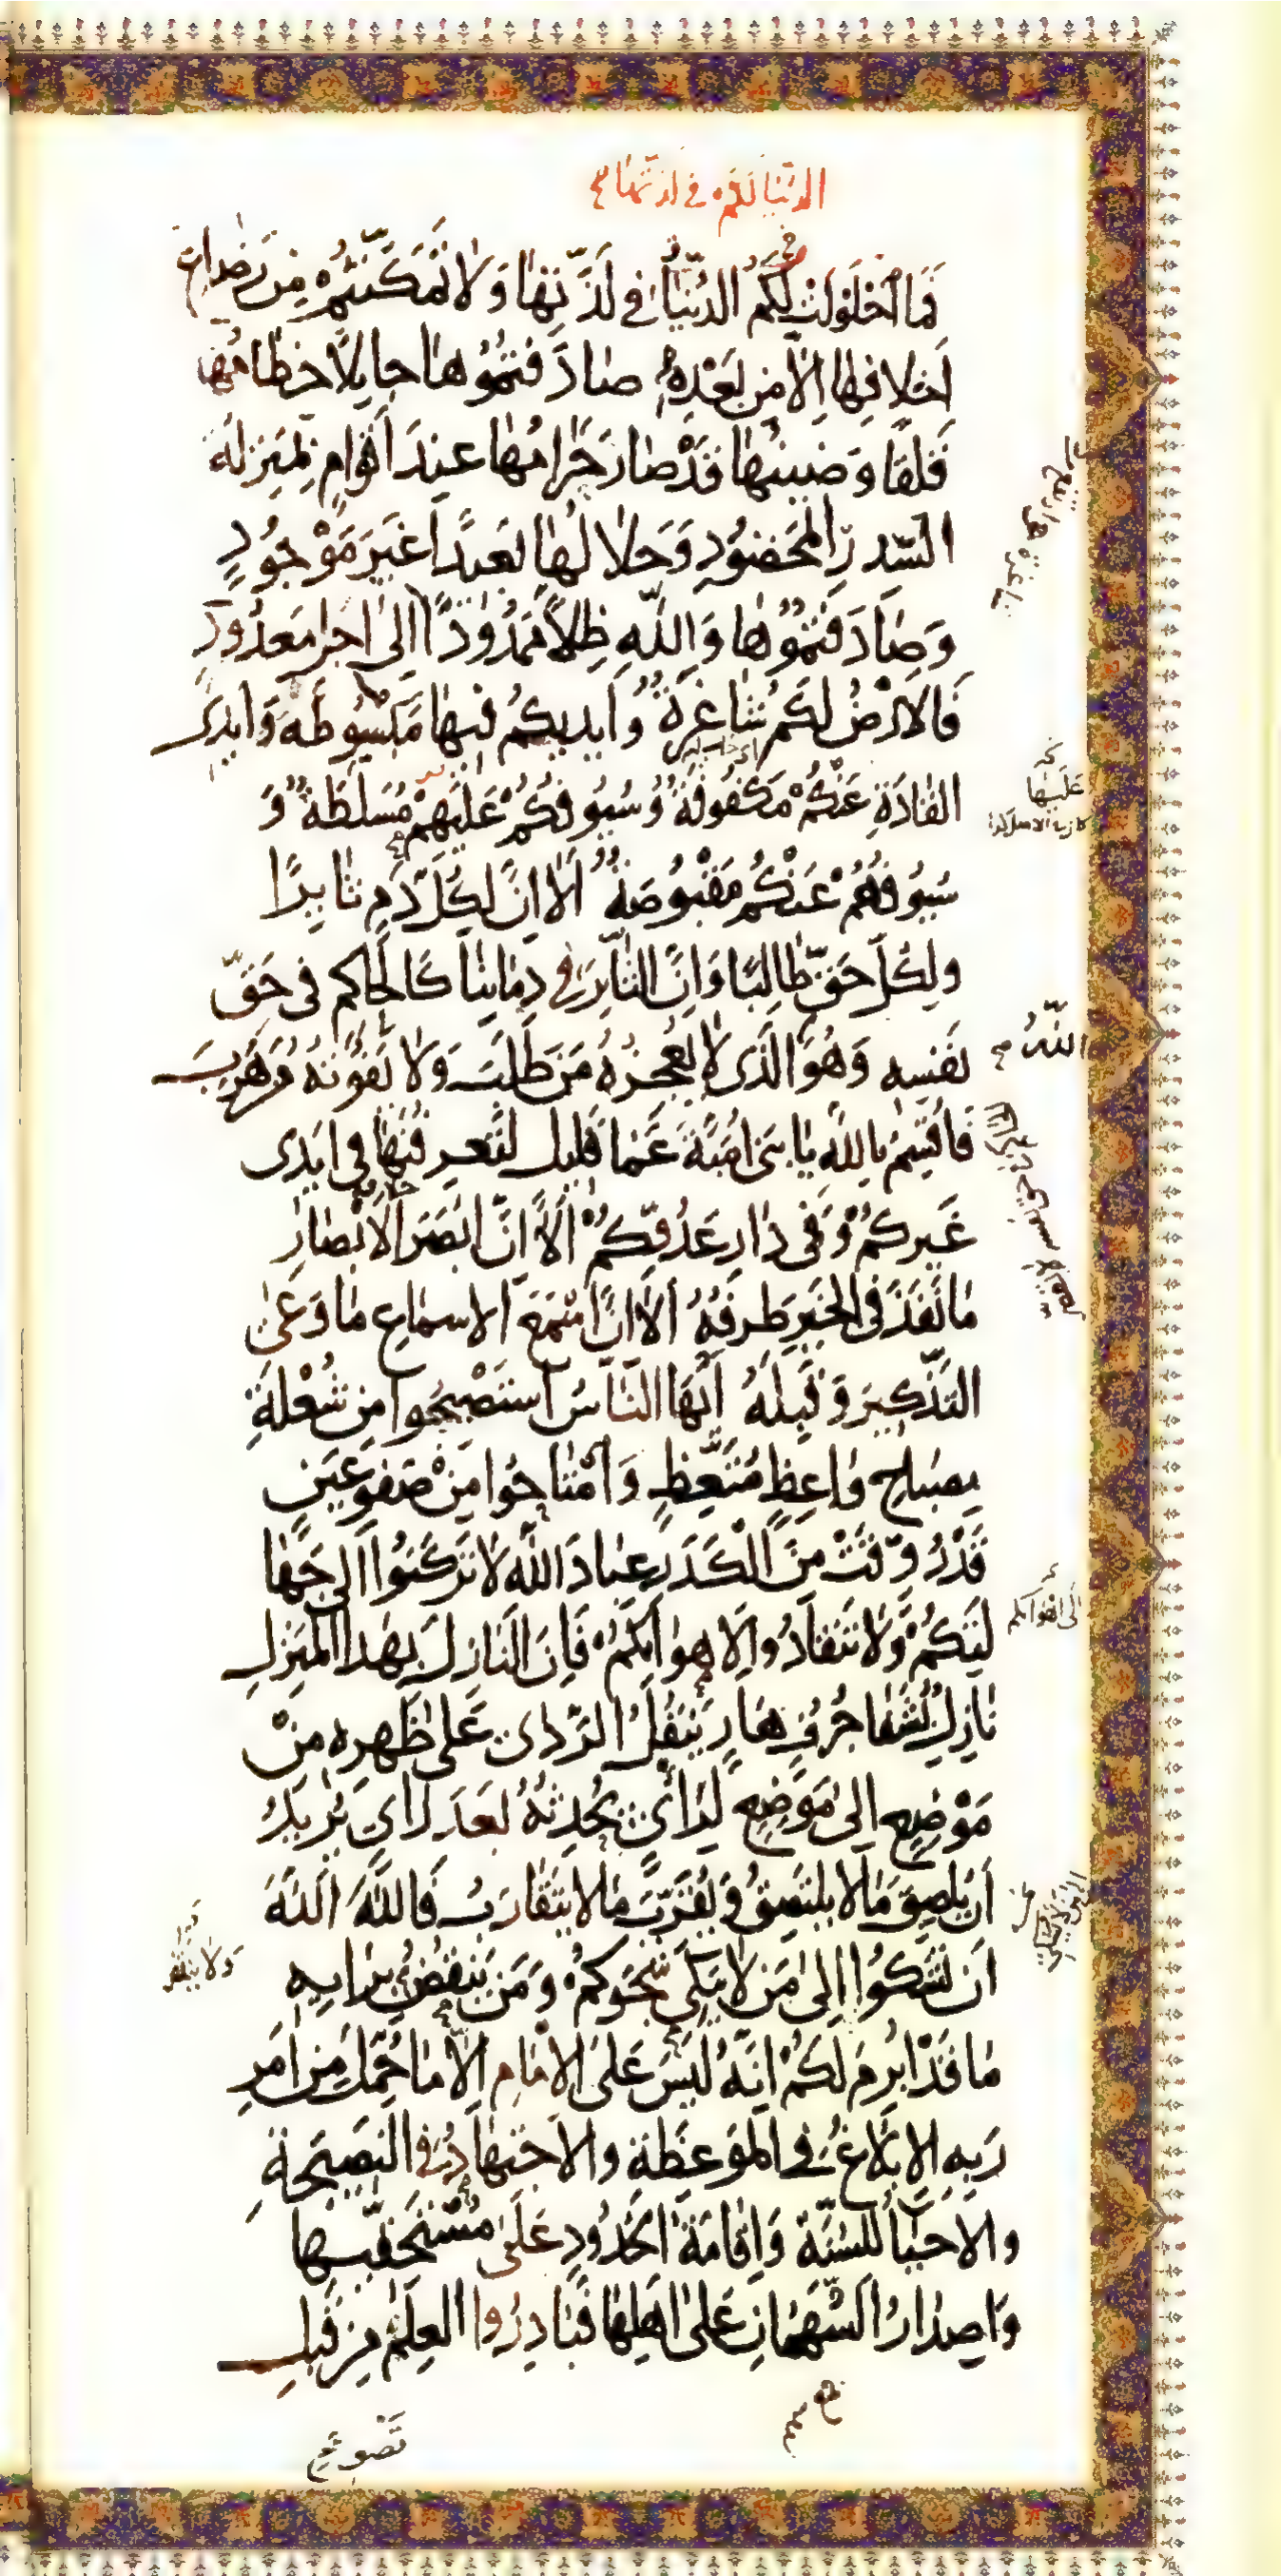 الدنيا لكم في لذتها
فَمَا احْلَوْلَتْ لَكُمُ الدُّنْيَا فِي لَذَّتِهَا وَلَا تَمَكَّنْتُمْ مِنْ رَضَاعِ
أَخْلَافِهَا إِلَّا مِنْ بَعْدِهِ صَادَفْتُمُوهَا جَايِلًا خِطَامُهَا
قَلِقًا وَضِينُهَا قَدْ صَارَ حَرَامُهَا عِنْدَ أَقْوَامٍ بِمَنْزِلَةِ
السِّدْرِ الْمَخْضُودِ وَحَلَالُهَا بَعِيدًا غَيْرَ مَوْجُودٍ
وَصَادَفْتُمُوهَا وَاللَّهِ ظِلًّا مَمْدُودًا إِلَى أَجَلٍ مَعْدُودٍ
فَالْأَرْضُ لَكُمْ شَاغِرَةٌ وَأَيْدِيكُمْ فِيهَا مَبْسُوطَةٌ وَأَيْدِي
الْقَادَةِ عَنْكُمْ مَكْفُوفَةٌ وَسُيُوفُكُمْ عَلَيْهِمْ مُسَلَّطَةٌ وَ
سُيُوفُهُمْ عَنْكُمْ مَقْبُوضَةٌ أَلَا إِنَّ لِكُلِّ دَمٍ ثَايِرًا
وَلِكُلِّ حَقٍّ طَالِبًا وَإِنَّ الثَّايِرَ فِي دِمَائِنَا كَالْحَاكِمِ فِي حَقِّ
نَفْسِهِ وَهُوَ الَّذِي لَا يُعْجِزُهُ مَنْ طَلَبَ وَلَا يَفُوتُهُ مَنْ هَرَبَ
اللَّهُ
فَأُقْسِمُ بِاللَّهِ يَا بَنِي أُمَيَّةَ عَمَّا قَلِيلٍ لَتَعْرِفُنَّهَا فِي أَيْدِي
غَيْرِكُمْ وَفِي دَارِ عَدُوِّكُمْ أَلَا إِنَّ أَبْصَرَ الْأَبْصَارِ
مَا نَفَذَ فِي الْخَيْرِ طَرْفُهُ أَلَا إِنَّ أَسْمَعَ الْأَسْمَاعِ مَا وَعَى
التَّذْكِيرَ وَقَبِلَهُ أَيُّهَا النَّاسُ اسْتَصْبِحُوا مِنْ شُعْلَةِ
مِصْبَاحٍ وَاعِظٍ مُتَّعِظٍ وَامْتَاحُوا مِنْ صَفْوِ عَيْنٍ
قَدْ رُوِّقَتْ مِنَ الْكَدَرِ عِبَادَ اللَّهِ لَا تَرْكَنُوا إِلَى جَهَا
لَتِكُمْ وَلَا تَنْقَادُوا لِأَهْوَائِكُمْ فَإِنَّ النَّازِلَ بِهَذَا الْمَنْزِلِ
إِلَى أَهْوَائِكُمْ
نَازِلٌ بِشَفَا جُرُفٍ هَارٍ يَنْقُلُ الرَّدَى عَلَى ظَهْرِهِ مِنْ
مَوْضِعٍ إِلَى مَوْضِعٍ لِرَأْيٍ يُحْدِثُهُ بَعْدَ رَأْيٍ يُرِيدُ
أَنْ يُلْصِقَ مَا لَا يَلْتَصِقُ وَيُقَرِّبَ مَا لَا يَتَقَارَبُ فَاللَّهَ اللَّهَ
أَنْ تَشْكُوا إِلَى مَنْ لَا يُبْكِي شَجْوَكُمْ وَمَنْ يَنْقُضُ بِرَأْيِهِ
مَا قَدْ أُبْرِمَ لَكُمْ إِنَّهُ لَيْسَ عَلَى الْإِمَامِ إِلَّا مَا حُمِّلَ مِنْ أَمْرِ
رَبِّهِ الْإِبْلَاغُ فِي الْمَوْعِظَةِ وَالِاجْتِهَادُ فِي النَّصِيحَةِ
وَالْإِحْيَاءُ لِلسُّنَّةِ وَإِقَامَةُ الْحُدُودِ عَلَى مُسْتَحِقِّيهَا
وَإِصْدَارُ السُّهْمَانِ عَلَى أَهْلِهَا فَبَادِرُوا الْعِلْمَ مِنْ قَبْلِ
تَصْوِيحِ